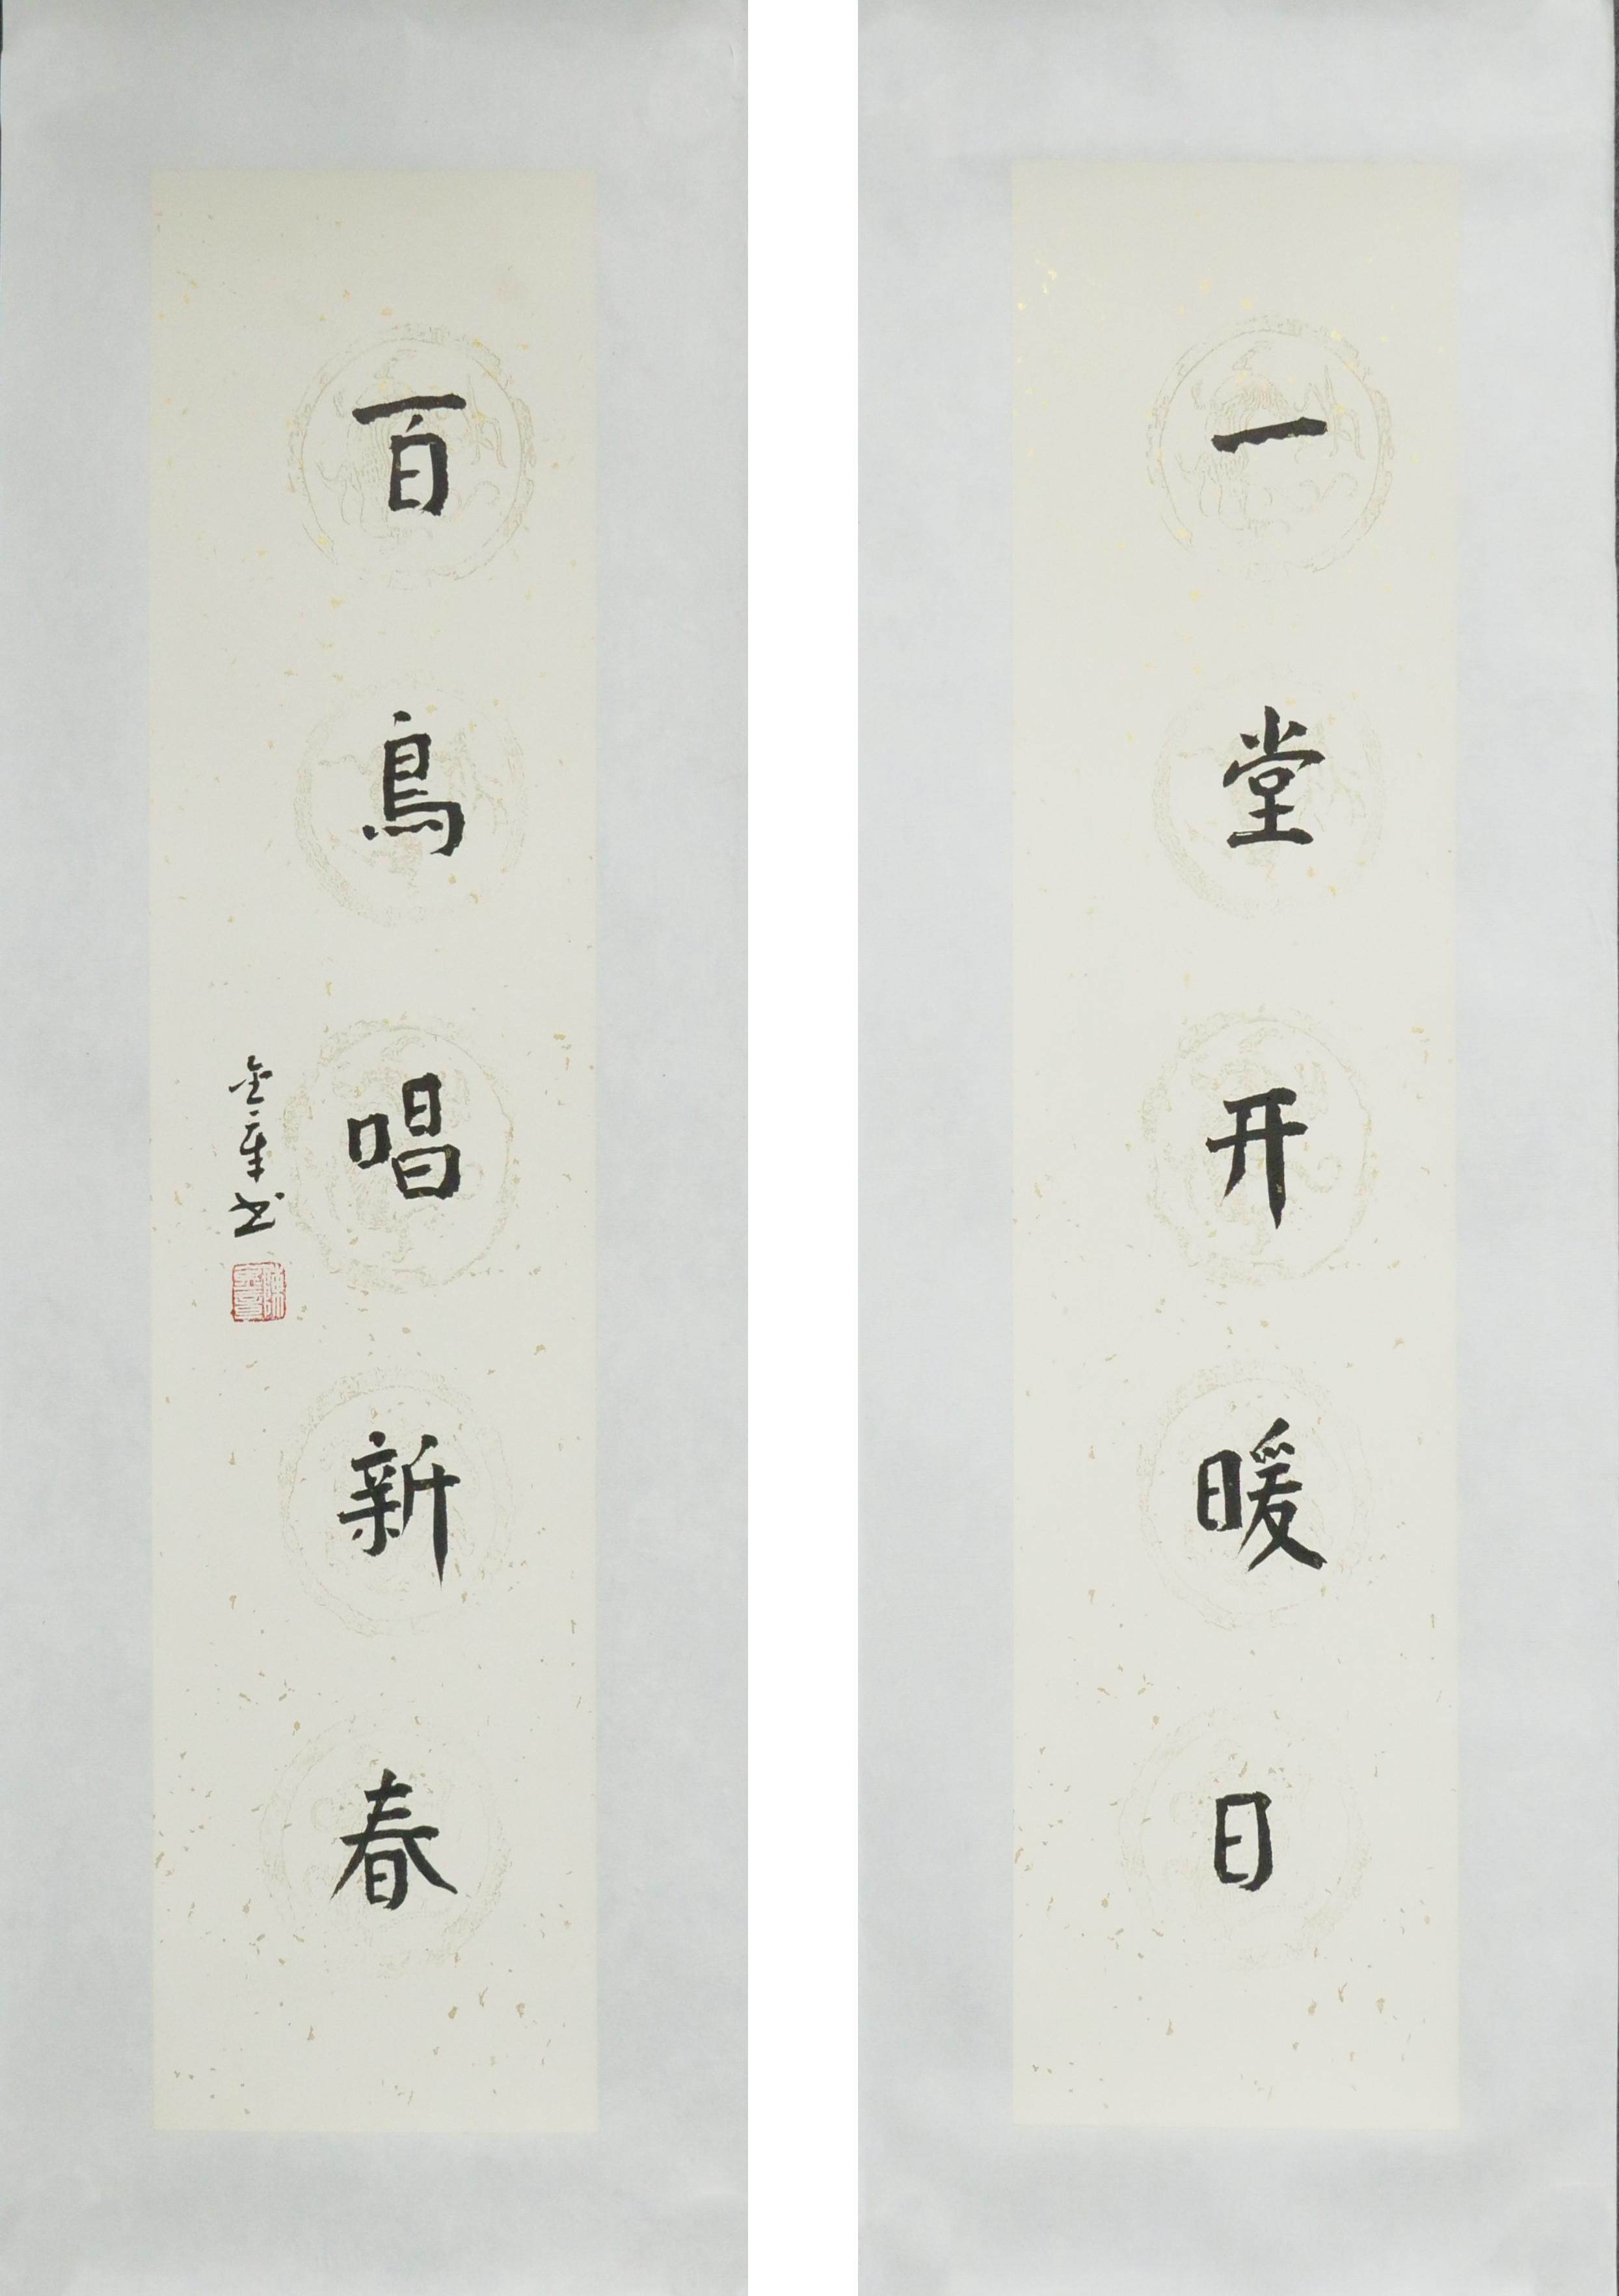 一堂开暖日
百鳥唱新春
金章书